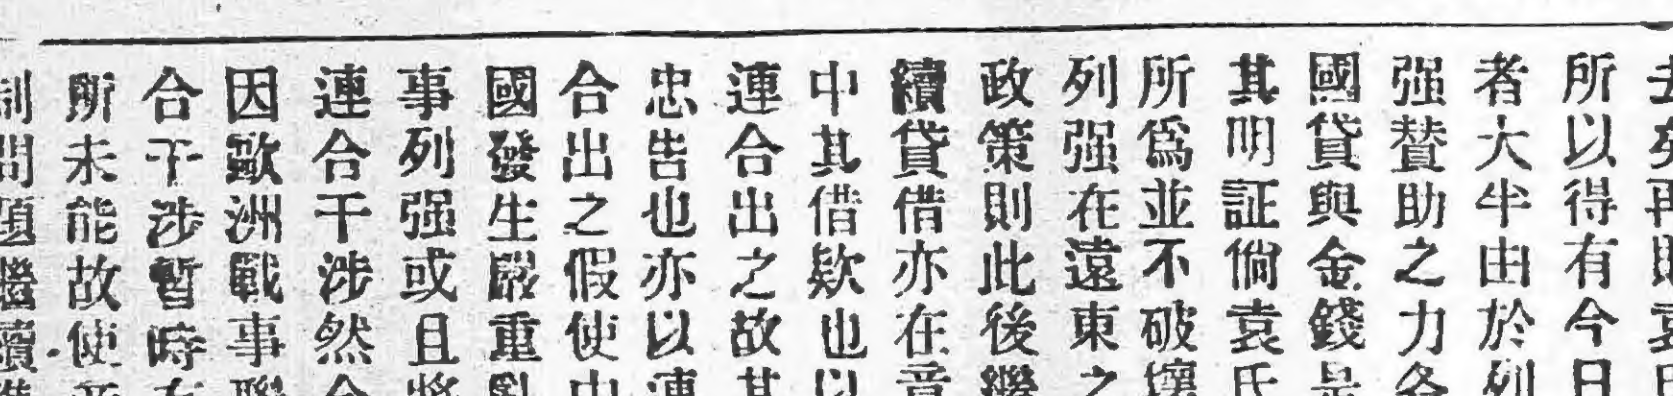 去列再
所以得有今日
者大半由於列
强贊助之力各
國貸與金錢是
其明証倘袁氏
所爲並不破壞
列强在遠東之
政策則此後繼
續貸借亦在意
中其借欵也以
連合出之故其
忠告也亦以連
合出之假使中
國發生嚴重亂
事列强或且將
連合干涉然今
因歐洲戰事聯
合干涉暫時在
所未能故使
制問題繼續進